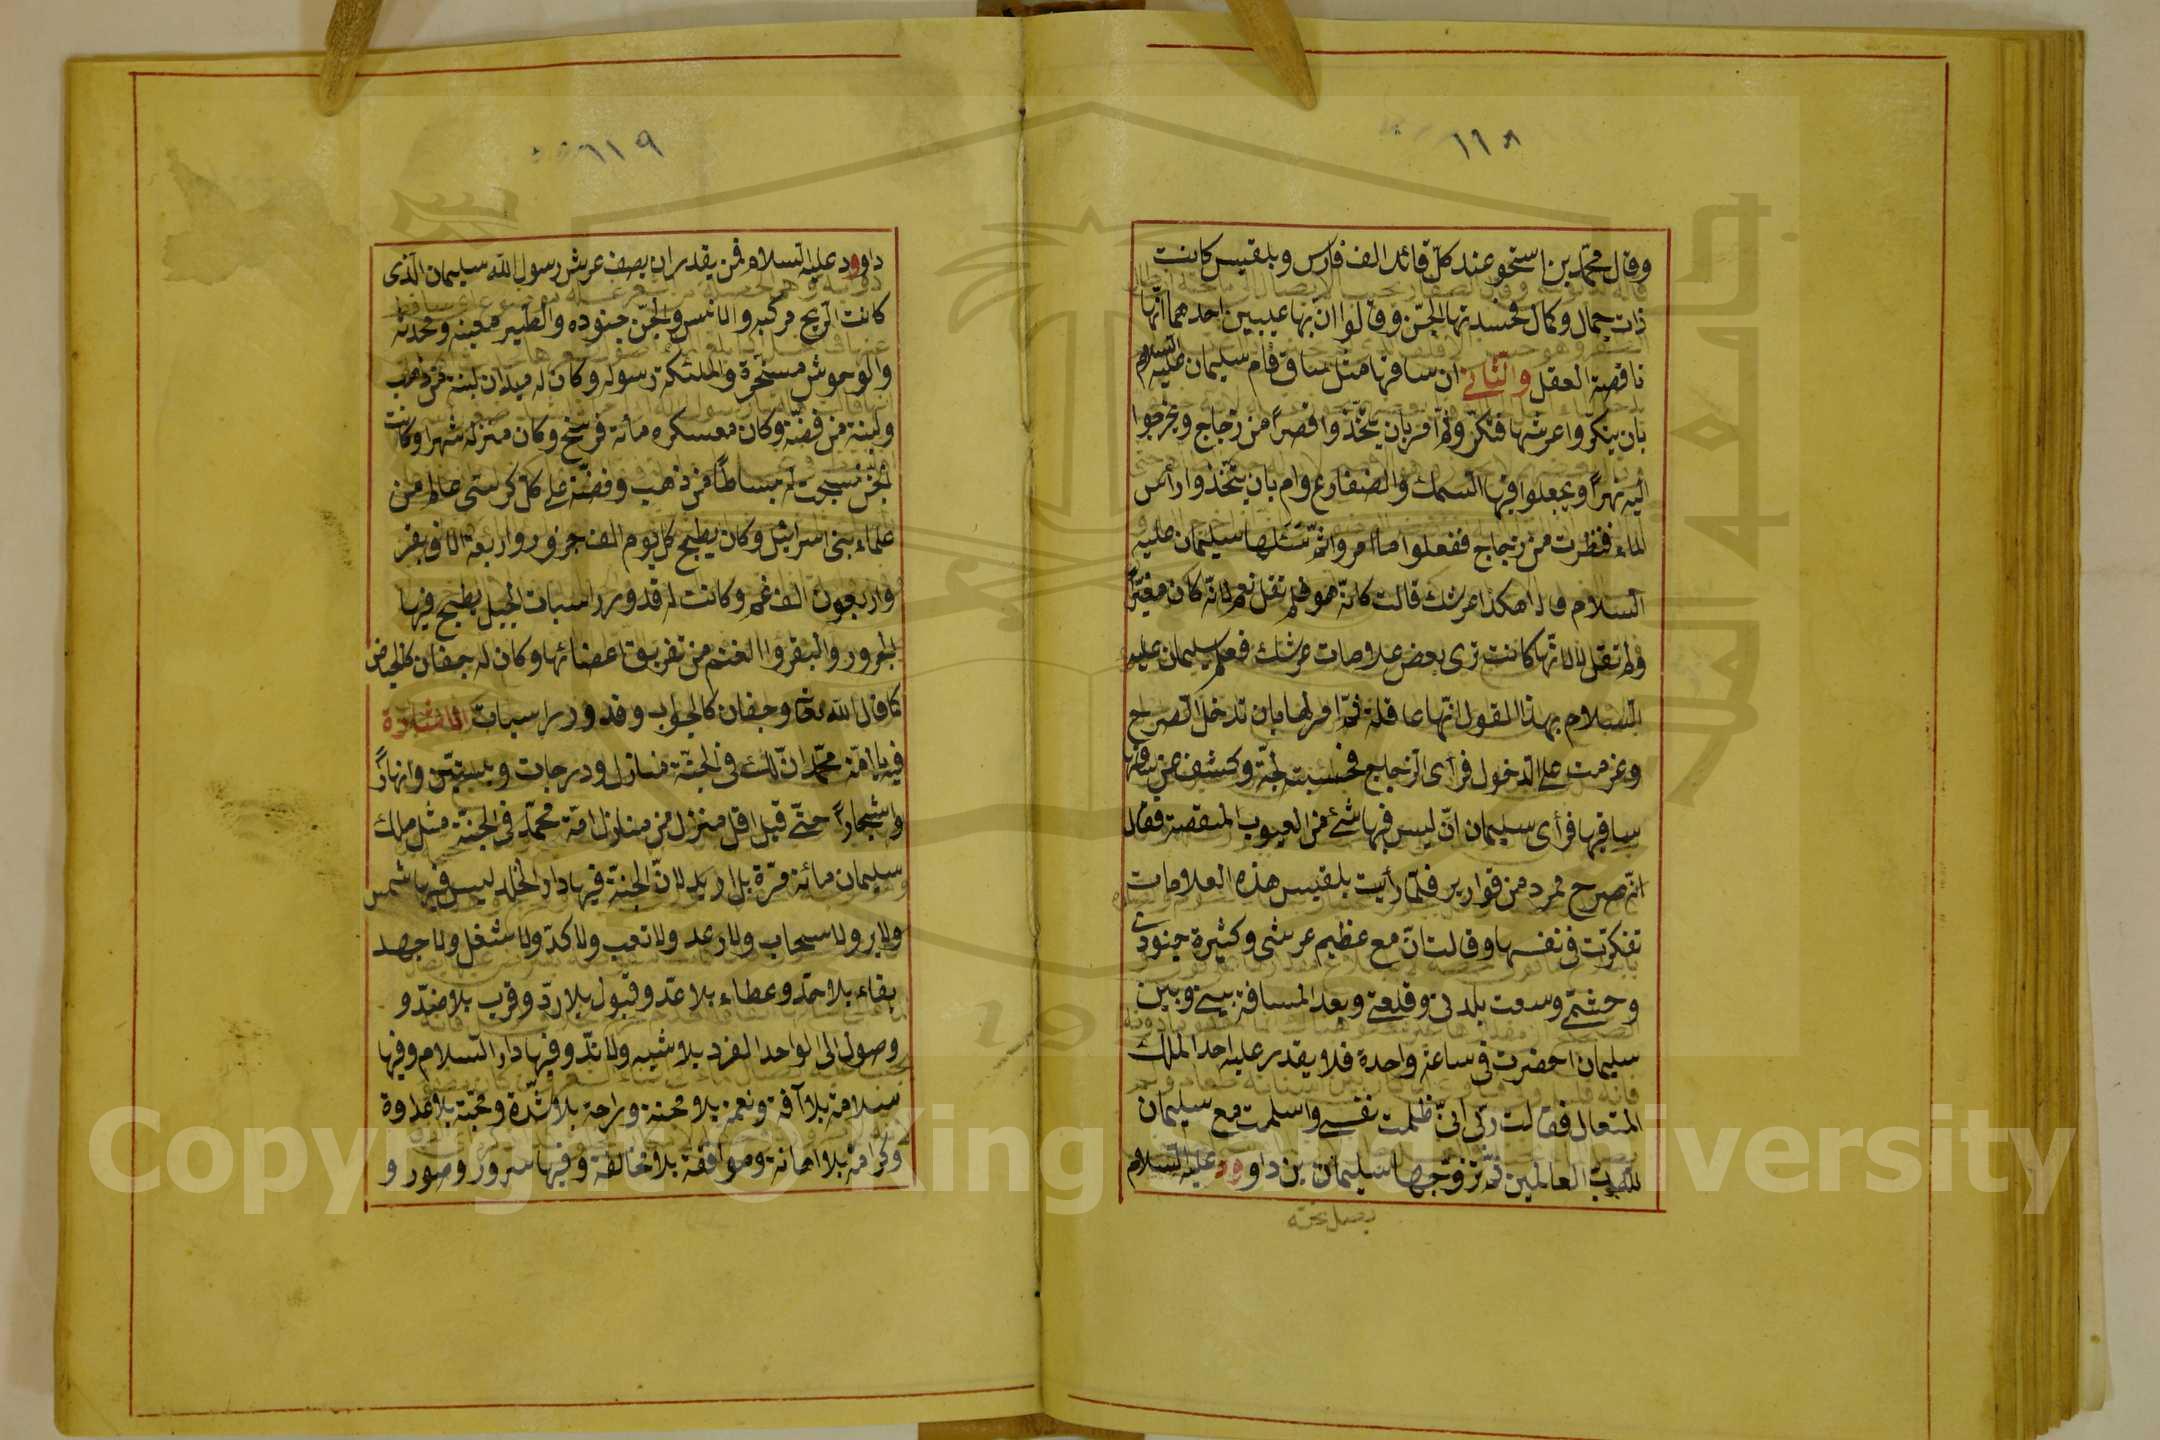 ١١٨
وقال محمد بن اسحق عند كلّ قائد الف فارس وبلقيس كانت
ذات جمال وكمال فحسدتها الجنّ وقالوا ان بها عيبين احدهما انّها
ناقصة العقل والثّاني ان ساقها مثل ساق فام سليمان عليه السلام
بان ينكّروا عرشها فنكّر وثمّ امر بان يتّخذوا قصراً من زجاج ويخرجوا
اليه نهراً ويجعلوا فيها السمك والضفادع وام بان يتّخذوا رأس
الماء فنظرت من زجاج ففعلوا ما امر وانّه سئلها سليمان عليه
السلام قال اهكذا عرشك قالت كانّه هو فلم تقل نعم لانّه كان مغيّراً
ولم تقل لا لانّها كانت ترى بعض علامات عرشك فعلم سليمان عليه
السلام بهذا القول انّها عاقلة ثمّ امر لها بان تدخل الصرح
وعزمت على الدخول فرأى الزجاج فحسبته لجّة وكشف عن ساقها
ساقيها فرأى سليمان انّ ليس فيها شئ من العيوب المنقصة فقال
انّه صرح ممرد من قوارير فلمّا رأيت بلقيس هذه العلامات
تفكرت في نفسها وقالت انّ مع عظيم عرشى وكثيرة جنودى
وحشمتي وسعت بلدتى وقلعتي وبعد المسافة بيني وبين
سليمان احضرت في ساعة واحدة فلا يقدر عليه احد الملك
المتعال فقالت ربّى انىّ ظلمت نفسي واسلمت مع سليمان
لله ربّ العالمين ثمّ تزوّجها سليمان بن داوود عليه السلام
١١٩
داوود عليه السلام فمن يقدر ان يصف عرش رسول الله سليمان الّذى
كانت الريح مركبه والانس والجنّ جنوده والطير معينه ومحدثه
والوحوش مسخّرة والملئكة رسوله وكان له ميدان لبنة من ذهب
ولبنة من فضّة وكان معسكره مأئة فرسخ وكان منزله شهرا وكانت
الجن نسجت له بساطاً من ذهب وفضّة على كلّ كرسى عالم من
علماء بنى اسرائيل وكان يطبخ كل يوم الف جزور واربعة الاف بقر
واربعون الف غنم وكانت له قدور راسيات الجبل يطبخ فيها
الجزور والبقر والغنم من تفريق اعضائها وكان له جفان كالحياض
كما قال الله تعا وجفان كالجواب وقدور راسيات
فيه يا امّة محمّد انّ لك في الجنّة منازل ودرجات وبساتين وانهاراً
واشجاراً حتّى قيل اقل منزل من منازل امّة محمّد في الجنّة مثل ملك
سليمان مائة مرّة بل ازيد لانّ الجنة فيها دار الخلد ليس فيها شمس
ولا بر ولا سحاب ولا رعد ولا تعب ولا كدّ ولا شغل ولا جهد
بقاء بلا حمدّ وعطاء بلا عدّ وقبول بلا ردّ وقرب بلا ضدّ و
وصول الى الواحد الفرد بلا شبيه ولا ندّ وفيها دار السلام وفيها
سلامة بلا آفة ونعمة بلا محنة وراحة بلا شدّة ومحبّة بلا عداوة
وكرامة بلا اهانة وموافقة بلا مخالفة وفيها سرور وصور و
Copyright © King Saud University